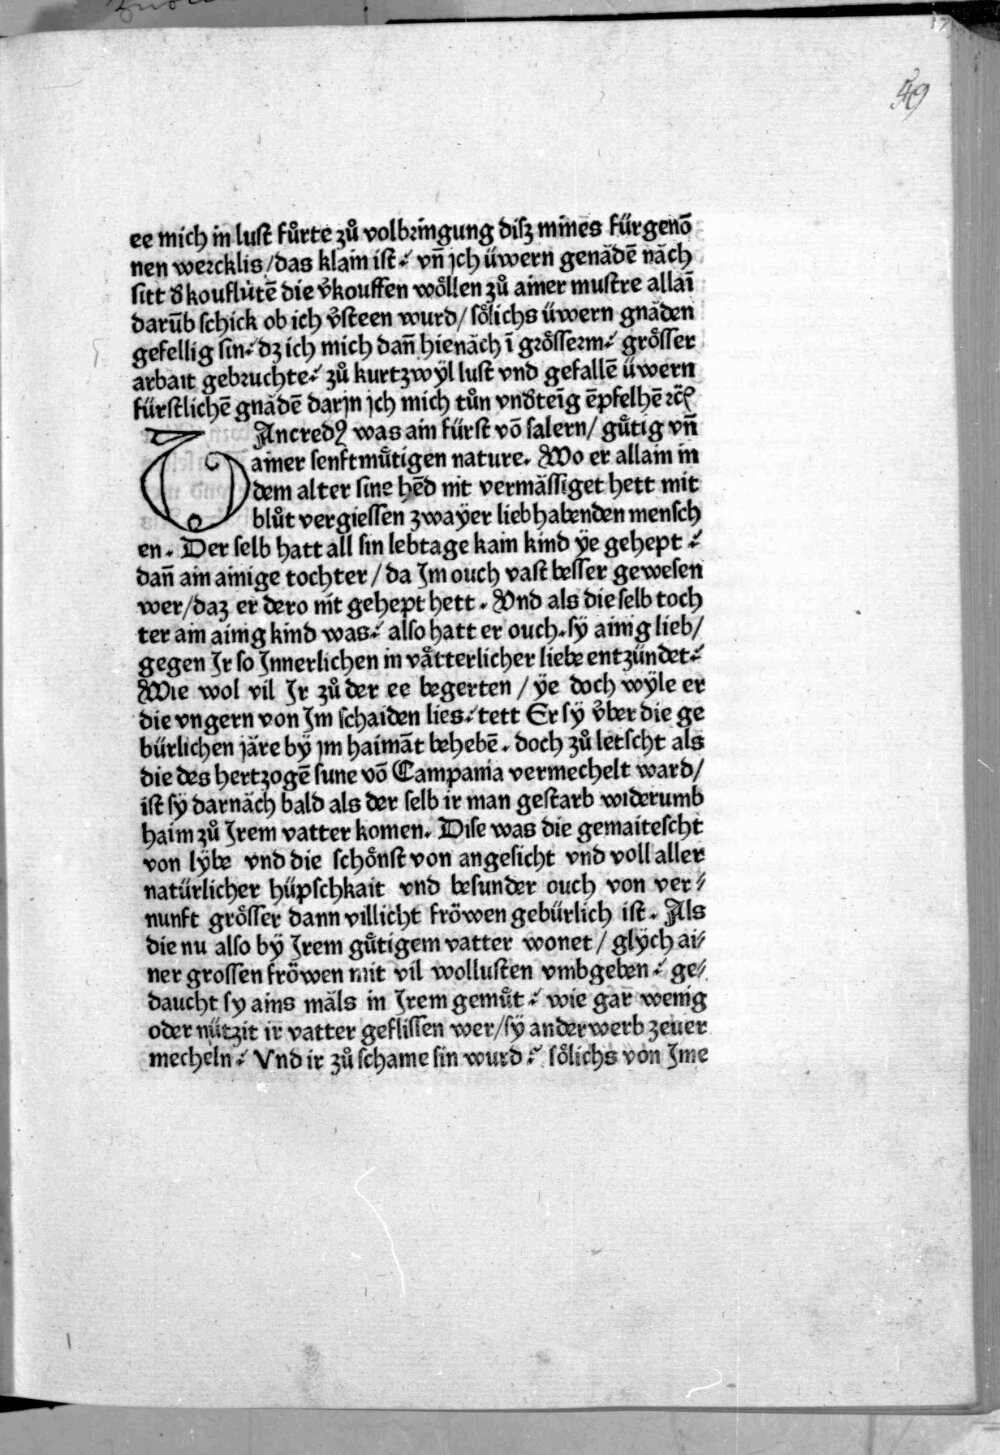 49
ee mich in lust fůrte zů volbringung disz mines fürgenō
nen wercklis/das klain ist⸗ vn̄ jch üwern genädē näch
sitt ď kouflütē die v̊kouffen wőllen zů ainer mustre allaī
darūb schick ob ich v̊steen wurd/ sőlichs üwern gnäden
gefellig sin⸗ dz ich mich dan̄ hienäch ī grősserm⸗ grősser
arbait gebruchte⸗ zů kurtzwÿl lust vnd gefallē üwern
fürstlichē gnädē darjn jch mich tůn vnďteīg ēpfelhē ⁊c̄
TAncredꝰ was ain fürst vō salern/ gůtig vn̄
ainer senftmůtigen nature. Wo er allain in
dem alter sine hēd nit vermässiget hett mit
blůt vergiessen zwaÿer liebhabenden mensch
en. Der selb hatt all sin lebtage kain kind ÿe gehept⸗
dan̄ ain ainige tochter/da Jm ouch vast besser gewesen
wer/daz er dero nit gehept hett. Vnd als die selb toch
ter ain ainig kind was⸗ also hatt er ouch.sÿ ainig lieb/
gegen Jr so Jnnerlichen in våtterlicher liebe entzündet⸗
Wie wol vil Jr zů der ee begerten/ÿe doch wÿle er
die vngern von Jm schaiden lies⸗tett Er sÿ v̊ber die ge
bürlichen järe bÿ jm haimāt behebē. doch zů letscht als
die des hertzogē sune vō Campania vermechelt ward/
ist sÿ darnäch bald als der selb ir man gestarb widerumb
haim zů Jrem vatter komen. Dise was die gemaitescht
von lÿbe vnd die schőnst von angesicht vnd voll aller
natürlicher hüpschkait vnd besunder ouch von ver⸗
nunft grősser dann villicht fröwen gebürlich ist. Als
die nu also bÿ Jrem gůtigem vatter wonet/ glÿch ai⸗
ner grossen fröwen mit vil wollusten vmbgeben⸗ ge⸗
daucht sy ains mäls in Jrem gemůt⸗ wie gar wenig
oder nützit ir vatter geflissen wer/sÿ anderwerb zeuer
mecheln⸗ Vnd ir zů schame sin wurd⸗ sőlichs von Jme